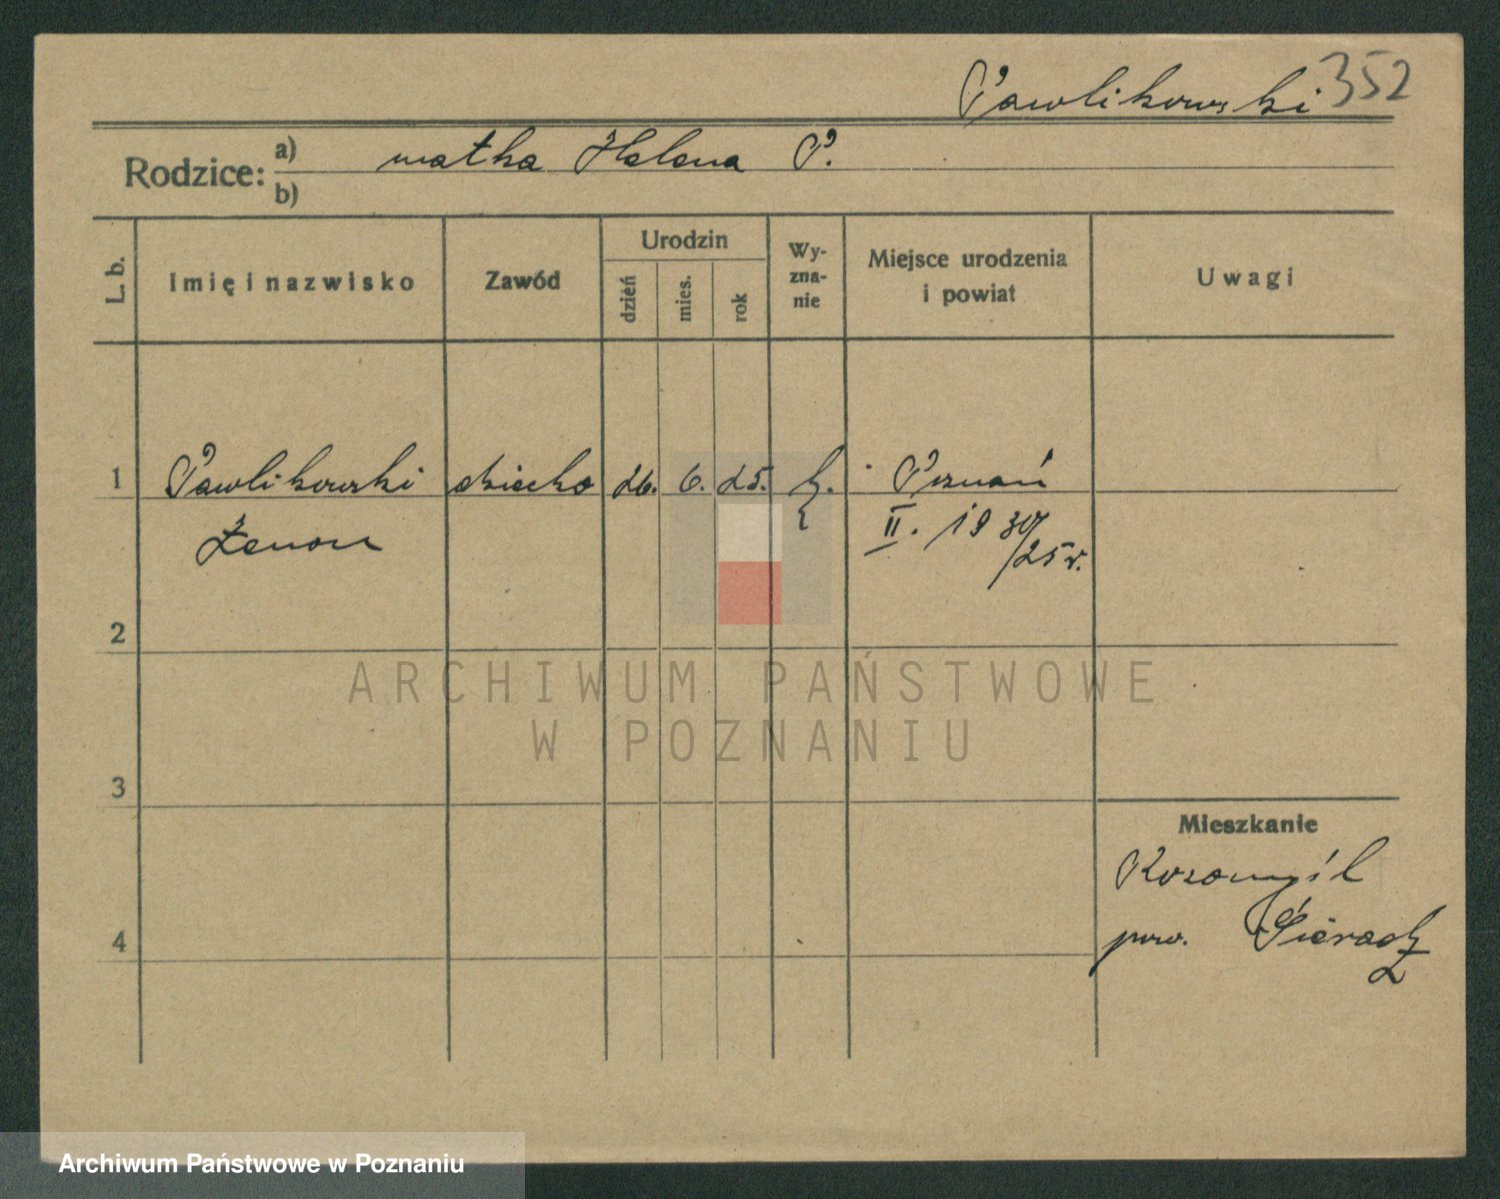 Pawlikowski 352
Rodzice: a) matka Helena P.
b)
L. b.
Imię i nazwisko
Zawód
Urodzin
dzień
mies.
rok
Wy-
zna-
nie
Miejsce urodzenia
i powiat
Uwagi
1 Pawlikowski dziecko 26. 6. 25. k. Poznań
Zenon II. 1930/25 r.
2
3
Mieszkanie
pow. Sieradz
4
ARCHIWUM PAŃSTWOWE
W POZNANIU
Archiwum Państwowe w Poznaniu